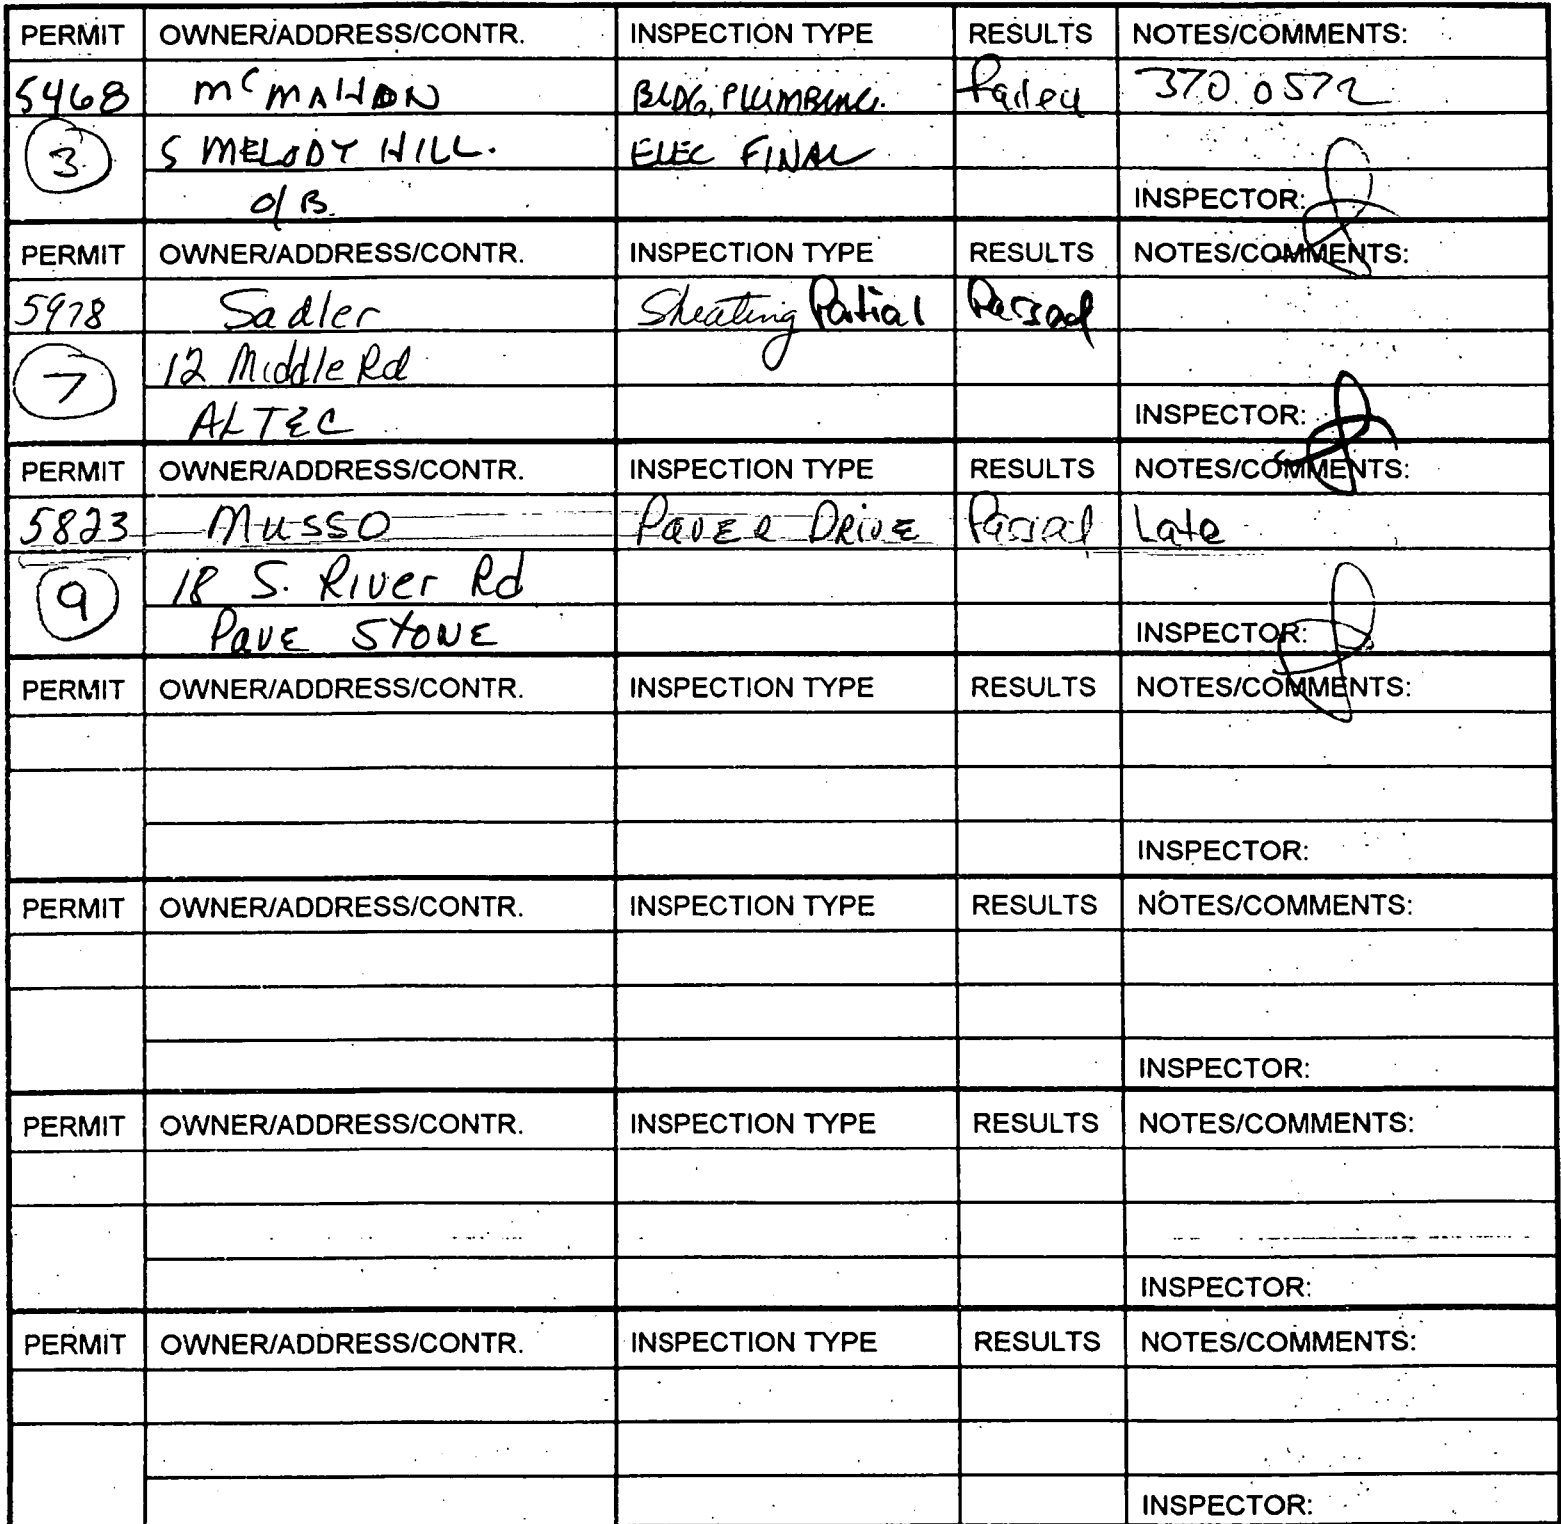 PERMIT OWNER/ADDRESS/CONTR. INSPECTION TYPE RESULTS NOTES/COMMENTS:
5468 McMAHON BLDG, PLUMBING. 370 0572
3 S MELODY HILL. ELEC FINAL
O/B. INSPECTOR:
PERMIT OWNER/ADDRESS/CONTR. INSPECTION TYPE RESULTS NOTES/COMMENTS:
5978 Sadler Sheating Partial Passed
7 12 Middle Rd
ALTEC INSPECTOR:
PERMIT OWNER/ADDRESS/CONTR. INSPECTION TYPE RESULTS NOTES/COMMENTS:
5823 Musso PAVER DRIVE Passed Late
9 18 S. River Rd
PAVE STONE INSPECTOR:
PERMIT OWNER/ADDRESS/CONTR. INSPECTION TYPE RESULTS NOTES/COMMENTS:
INSPECTOR:
PERMIT OWNER/ADDRESS/CONTR. INSPECTION TYPE RESULTS NOTES/COMMENTS:
INSPECTOR:
PERMIT OWNER/ADDRESS/CONTR. INSPECTION TYPE RESULTS NOTES/COMMENTS:
INSPECTOR:
PERMIT OWNER/ADDRESS/CONTR. INSPECTION TYPE RESULTS NOTES/COMMENTS:
INSPECTOR: